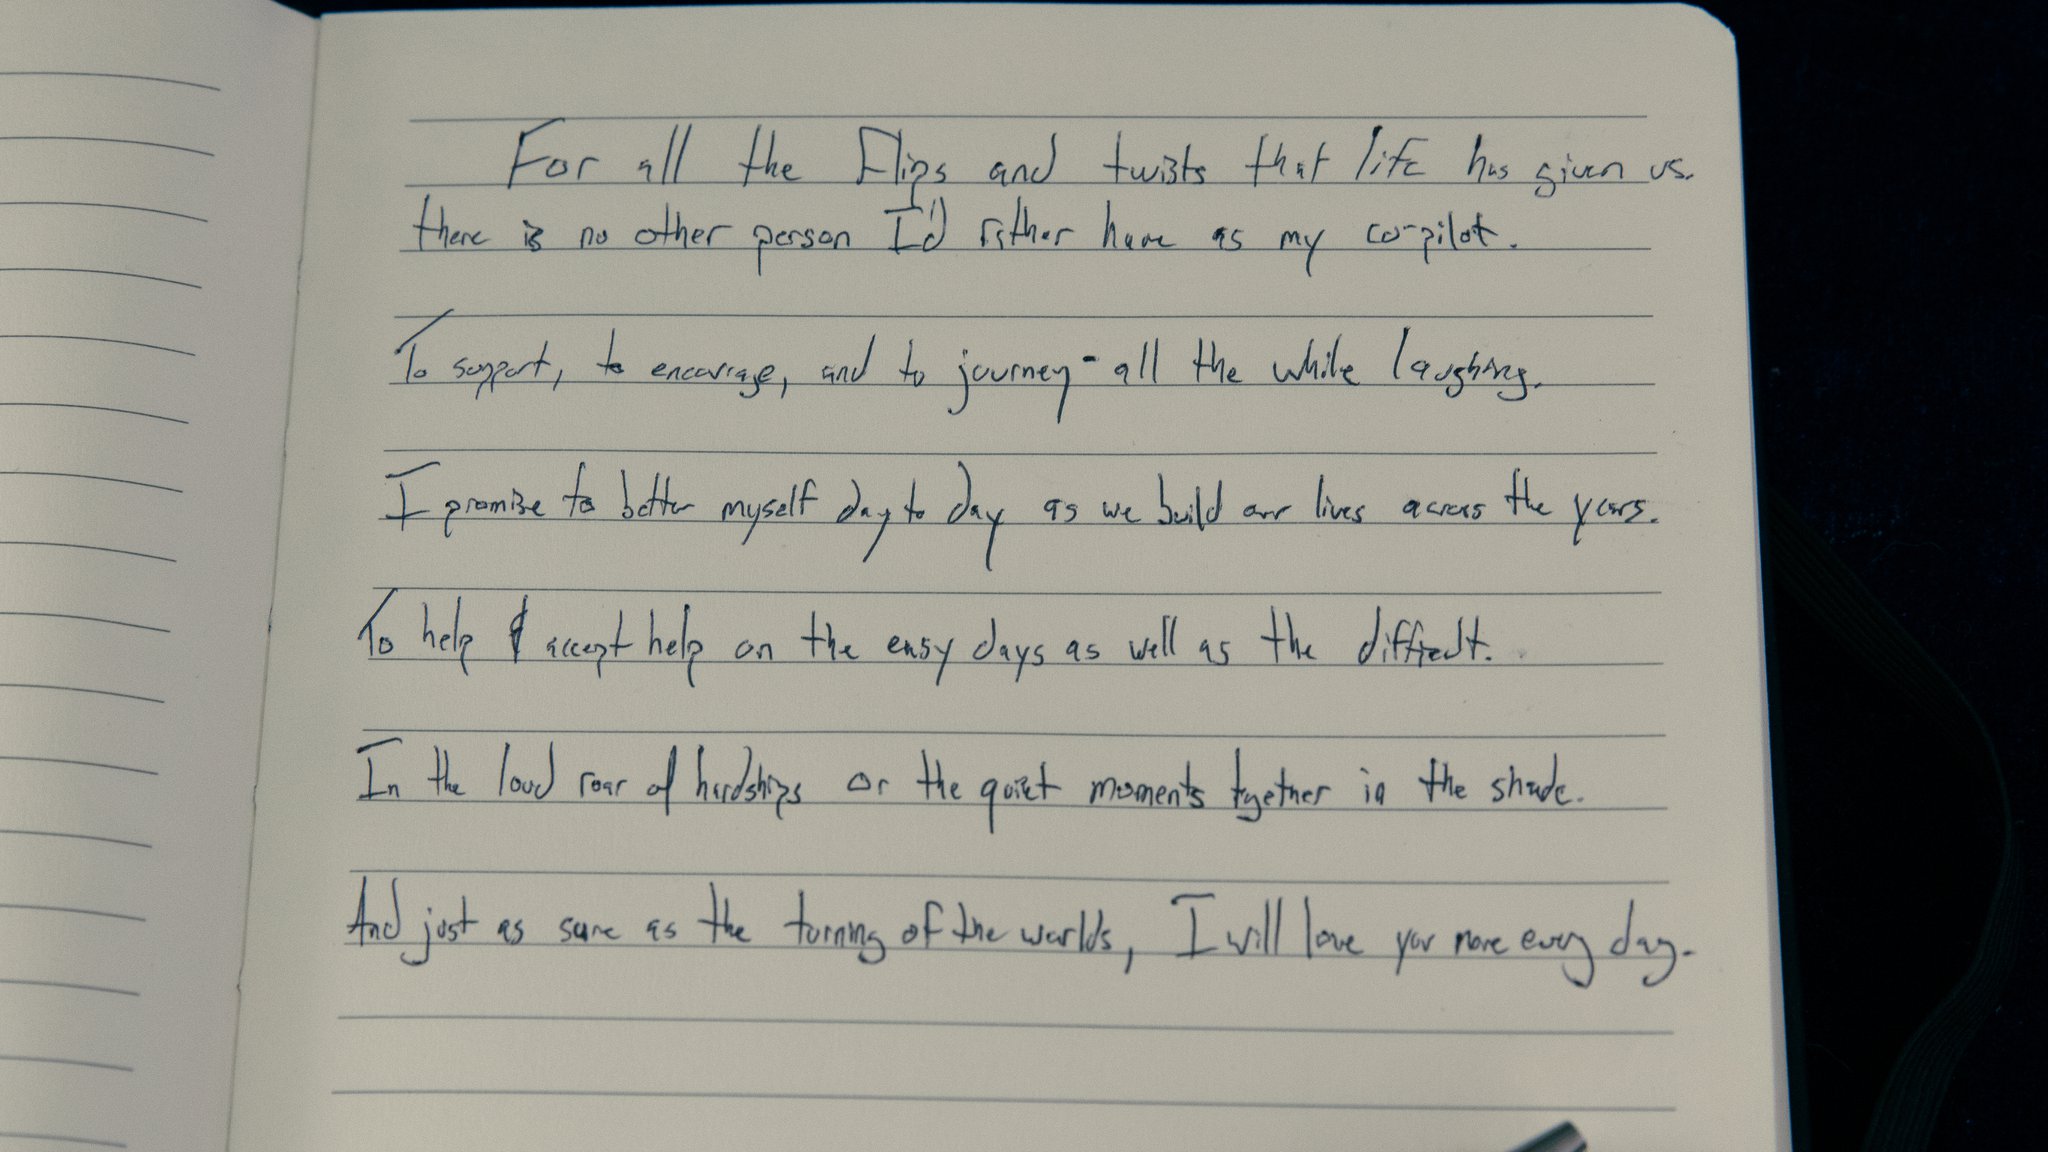 For all the Flips and twists that life has given us.
there is no other person I'd rather have as my co-pilot.
To support, to encourage, and to journey - all the while laughing.
I promise to better myself day to day as we build our lives across the years.
To help & accept help on the easy days as well as the difficult.
In the loud roar of hardships or the quiet moments together in the shade.
And just as sure as the turning of the worlds, I will love you more every day.